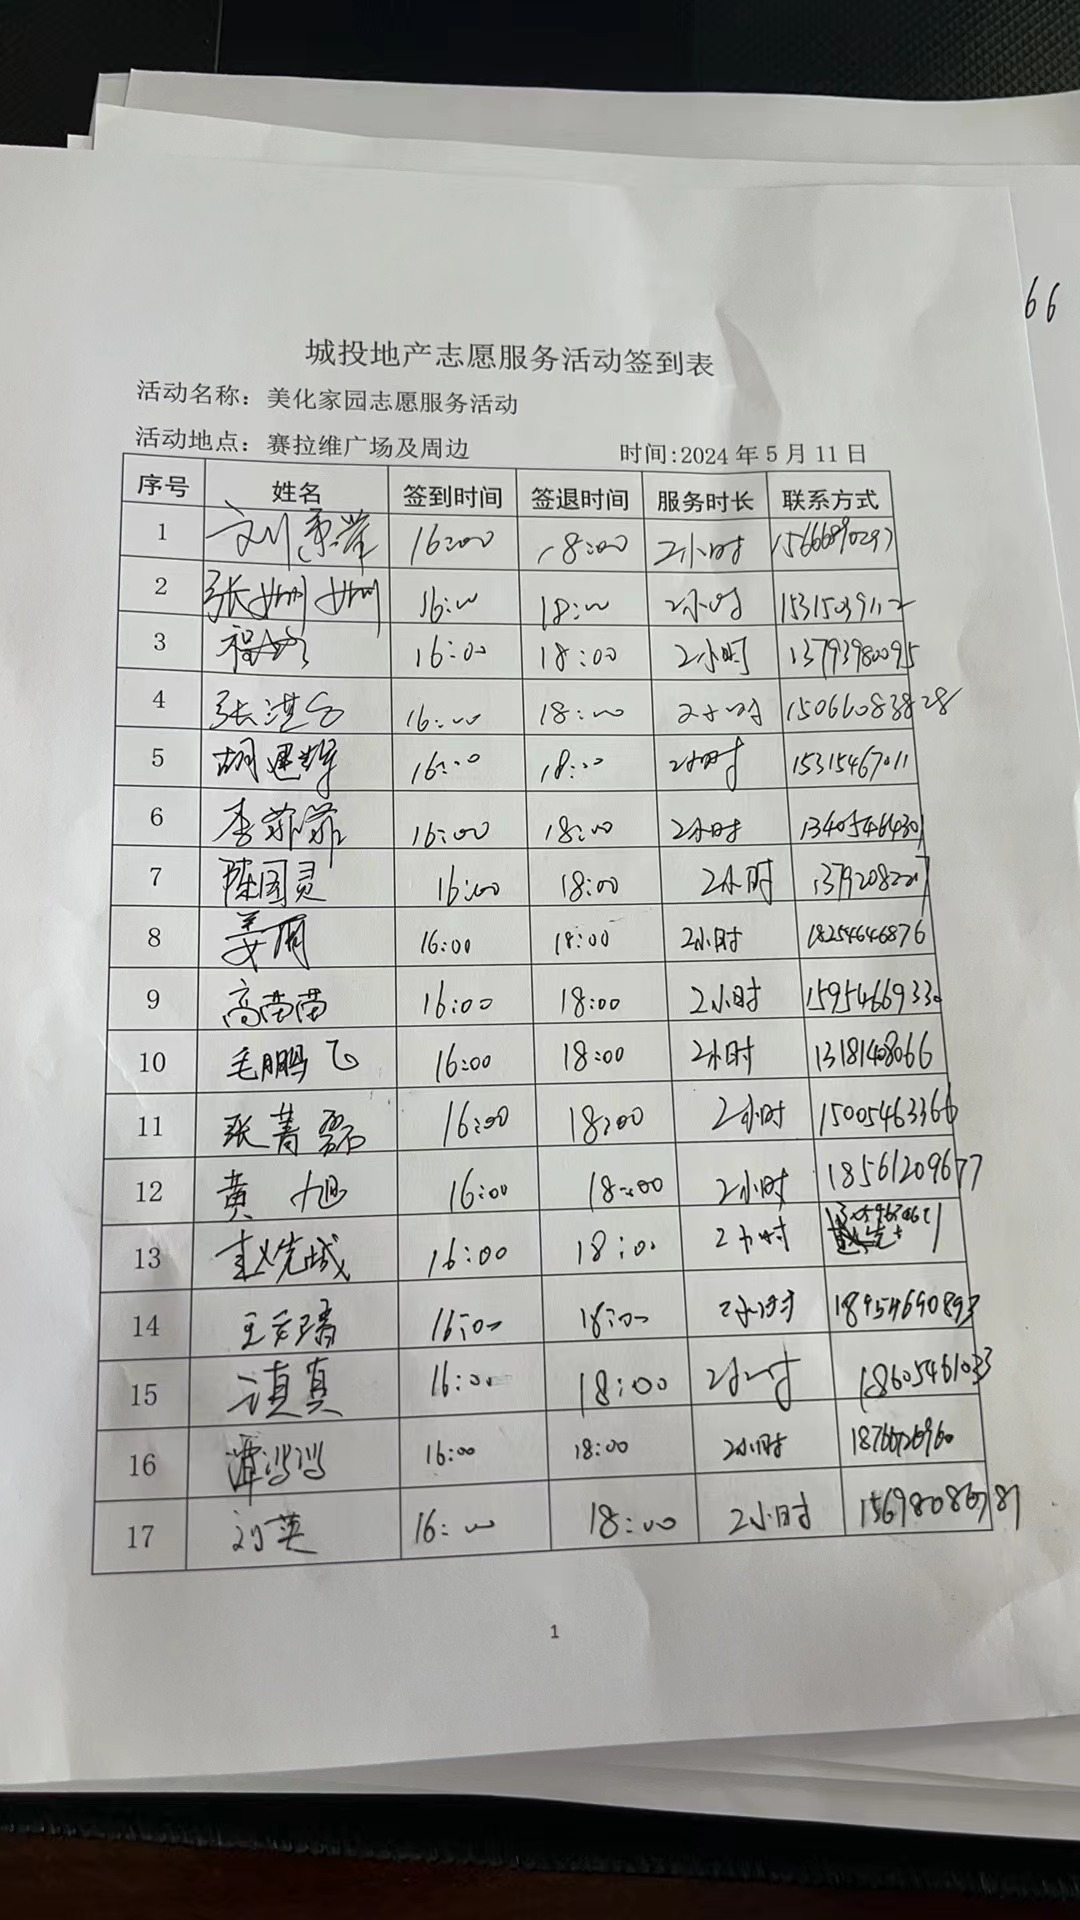 66
城投地产志愿服务活动签到表
活动名称：美化家园志愿服务活动
活动地点：赛拉维广场及周边 时间:2024年5月11日
序号 姓名 签到时间 签退时间 服务时长 联系方式
1 16:00 18:00 2小时 15666890297
2 张姗姗 16:00 18:00 2小时 15315039112
3 16:00 18:00 2小时 13793980095
4 16:00 18:00 2小时 15066083828
5 胡建辉 16:00 18:00 2小时 15315467011
6 李菲菲 16:00 18:00 2小时
7 陈国灵 16:00 18:00 2小时
8 姜丽 16:00 18:00 2小时 18254646876
9 高苗苗 16:00 18:00 2小时 15954669330
10 毛鹏飞 16:00 18:00 2小时 13181408066
11 张菁磊 16:00 18:00 2小时 15005463366
12 黄旭 16:00 18:00 2小时 18561209677
13 赵先城 16:00 18:00 2小时
14 16:00 18:00 2小时 18954690893
15 16:00 18:00 2小时 18605461033
16 谭鸿鸿 16:00 18:00 2小时
17 刘英 16:00 18:00 2小时
1